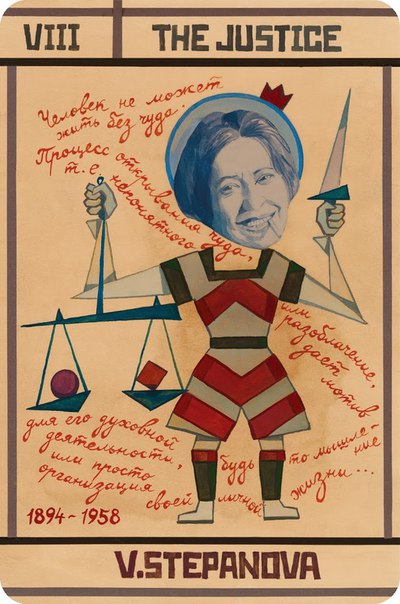 VIII THE JUSTICE
Человек не может
жить без чуда.
Процесс открывания чуда,
т.е. непонятного
или
разоблачение,
даст мотив
для его духовной
деятельности,
будь то мышление
или просто
организация
своей личной жизни...
1894-1958
V.STEPANOVA